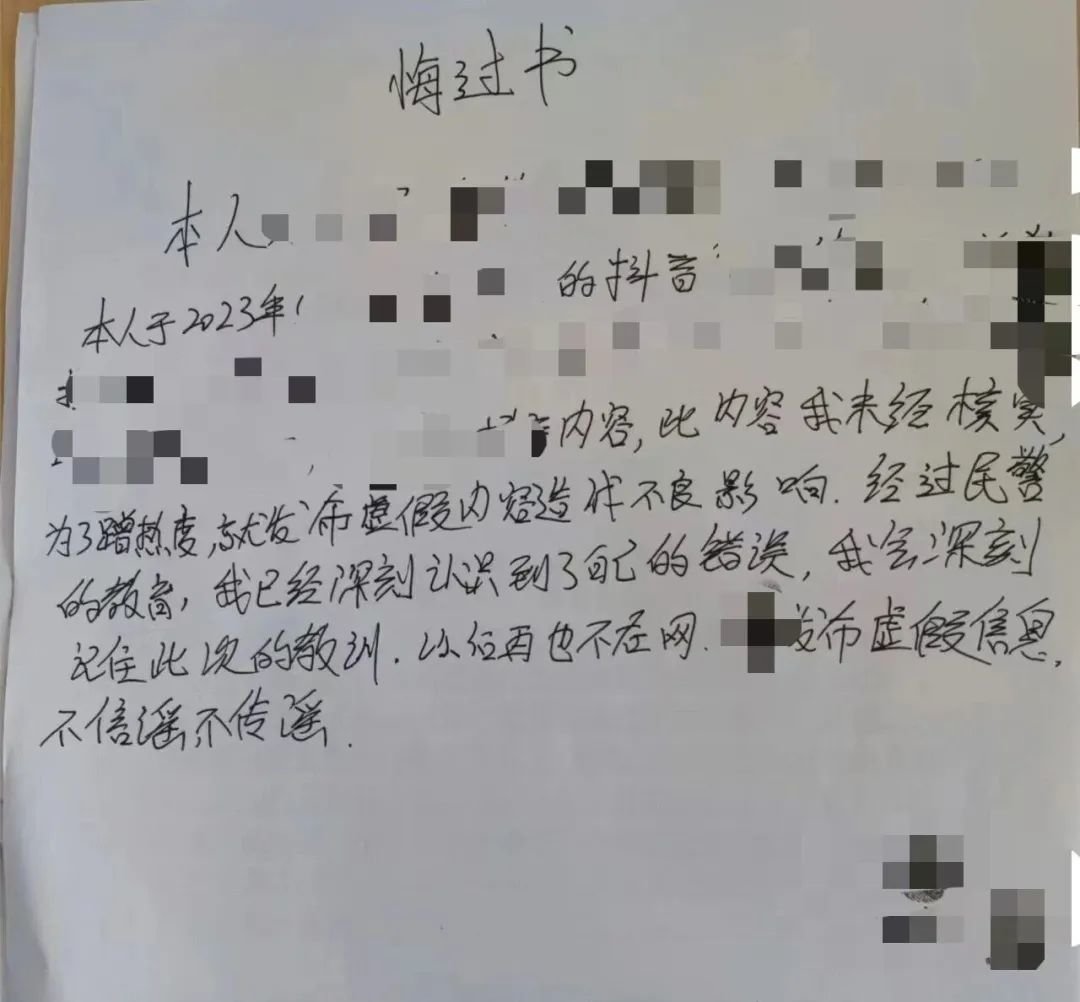 悔过书
本人
的抖音
本人于2023年
内容,此内容我未经核实,
为了蹭热度,就发布虚假内容造成不良影响.经过民警
的教育,我已经深刻认识到了自己的错误,我会深刻
记住此次的教训.以后再也不在网 发布虚假信息.
不信谣不传谣.